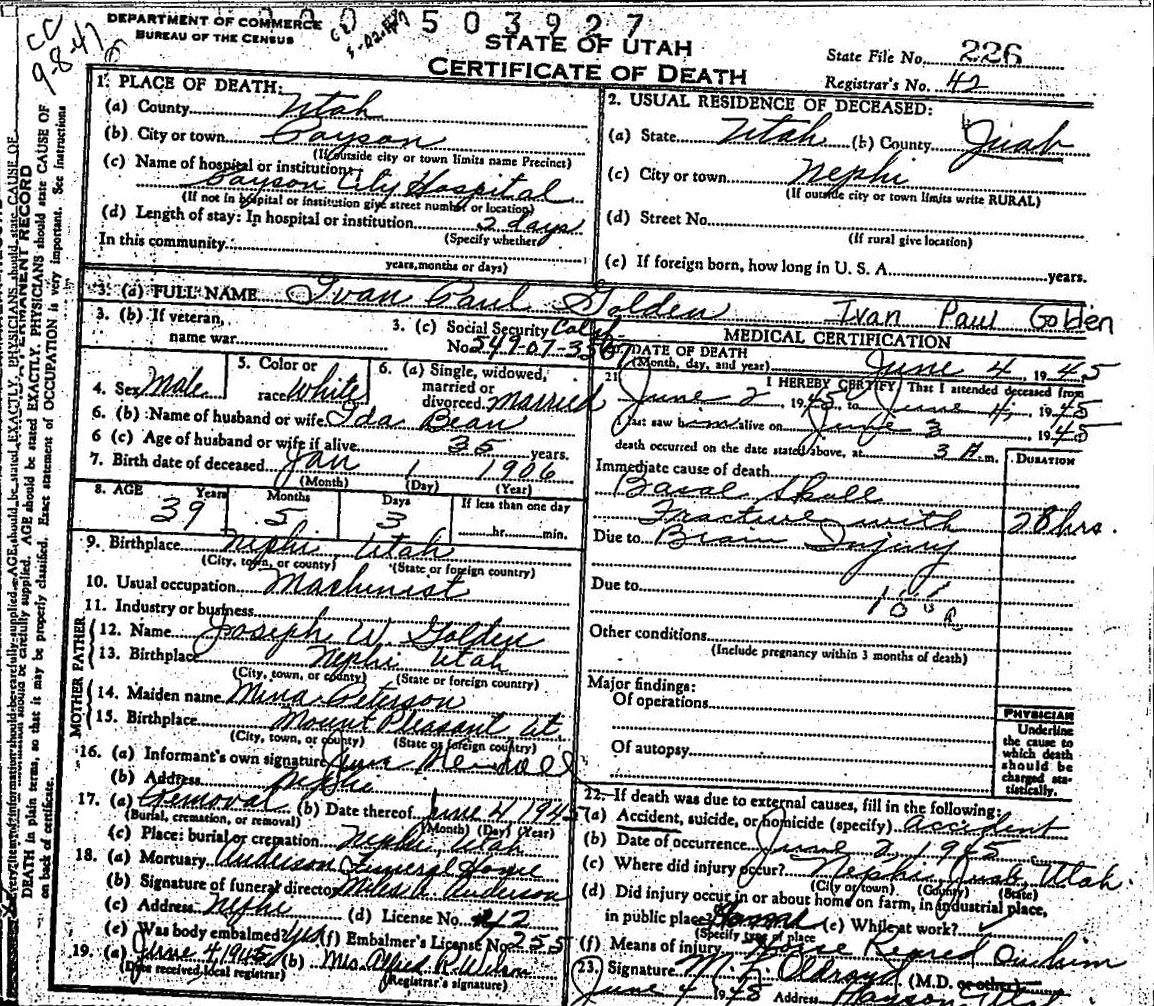 DEPARTMENT OF COMMERCE
BUREAU OF THE CENSUS
503927
STATE OF UTAH
CERTIFICATE OF DEATH
State File No. 226
Registrar's No. 42
9-8-47
1. PLACE OF DEATH:
(a) County Utah
(b) City or town Payson
(If outside city or town limits name Precinct)
(c) Name of hospital or institution:
Payson City Hospital
(If not in hospital or institution give street number or location)
(d) Length of stay: In hospital or institution 2 days
(Specify whether
In this community
years, months or days)
2. USUAL RESIDENCE OF DECEASED:
(a) State Utah (b) County Juab
(c) City or town Nephi
(If outside city or town limits write RURAL)
(d) Street No.
(If rural give location)
(e) If foreign born, how long in U. S. A. years.
3. (a) FULL NAME Ivan Paul Golden Ivan Paul Golden
3. (b) If veteran,
name war
3. (c) Social Security Calif
No. 549-07-3567
4. Sex Male
5. Color or
race White
6. (a) Single, widowed,
married or
divorced. Married
6. (b) Name of husband or wife Ida Bean
6 (c) Age of husband or wife if alive 35 years.
7. Birth date of deceased Jan 1 1906
(Month) (Day) (Year)
8. AGE Years Months Days If less than one day
39 5 3 hr. min.
9. Birthplace Nephi Utah
(City, town, or county) (State or foreign country)
10. Usual occupation Machinist
11. Industry or business
FATHER
12. Name Joseph W Golden
13. Birthplace Nephi Utah
(City, town, or county) (State or foreign country)
MOTHER
14. Maiden name Mina Peterson
15. Birthplace Mount Pleasant Ut
(City, town, or county) (State or foreign country)
16. (a) Informant's own signature June
(b) Address Nephi
17. (a) Removal (b) Date thereof June 4 1945
(Burial, cremation, or removal) (Month) (Day) (Year)
(c) Place: burial or cremation Nephi Utah
18. (a) Mortuary Anderson Funeral Home
(b) Signature of funeral director Miles A. Anderson
(c) Address Nephi (d) License No. 412
(e) Was body embalmed? yes (f) Embalmer's License No. 255
19. (a) June 4, 1945 (b) Mrs. Alfred R. Wilson
(Date received local registrar) (Registrar's signature)
MEDICAL CERTIFICATION
20. DATE OF DEATH
(Month, day, and year) June 4 1945
21. I HEREBY CERTIFY, That I attended deceased from
June 2 1945, to June 4, 1945
I last saw him alive on June 3 1945
death occurred on the date stated above, at 3 A m.
DURATION
Immediate cause of death
Basal Skull
Fracture with 28 hrs.
Due to Brain Injury
Due to
Other conditions
(Include pregnancy within 3 months of death)
Major findings:
Of operations
Of autopsy
PHYSICIAN
Underline
the cause to
which death
should be
charged sta-
tistically.
22. If death was due to external causes, fill in the following:
(a) Accident, suicide, or homicide (specify) accident
(b) Date of occurrence June 2, 1945
(c) Where did injury occur? Nephi Juab Utah
(City or town) (County) (State)
(d) Did injury occur in or about home on farm, in industrial place,
in public place?
(Specify type of place
(e) While at work?
(f) Means of injury Horse Reared Over him
23. Signature M. L. Oldroyd (M.D. or other)
June 4 1945 Address Payson, Utah
AGE should be stated EXACTLY. PHYSICIANS should state CAUSE OF
DEATH in plain terms, so that it may be properly classified. Exact statement of OCCUPATION is very important. See instructions
on back of certificate.